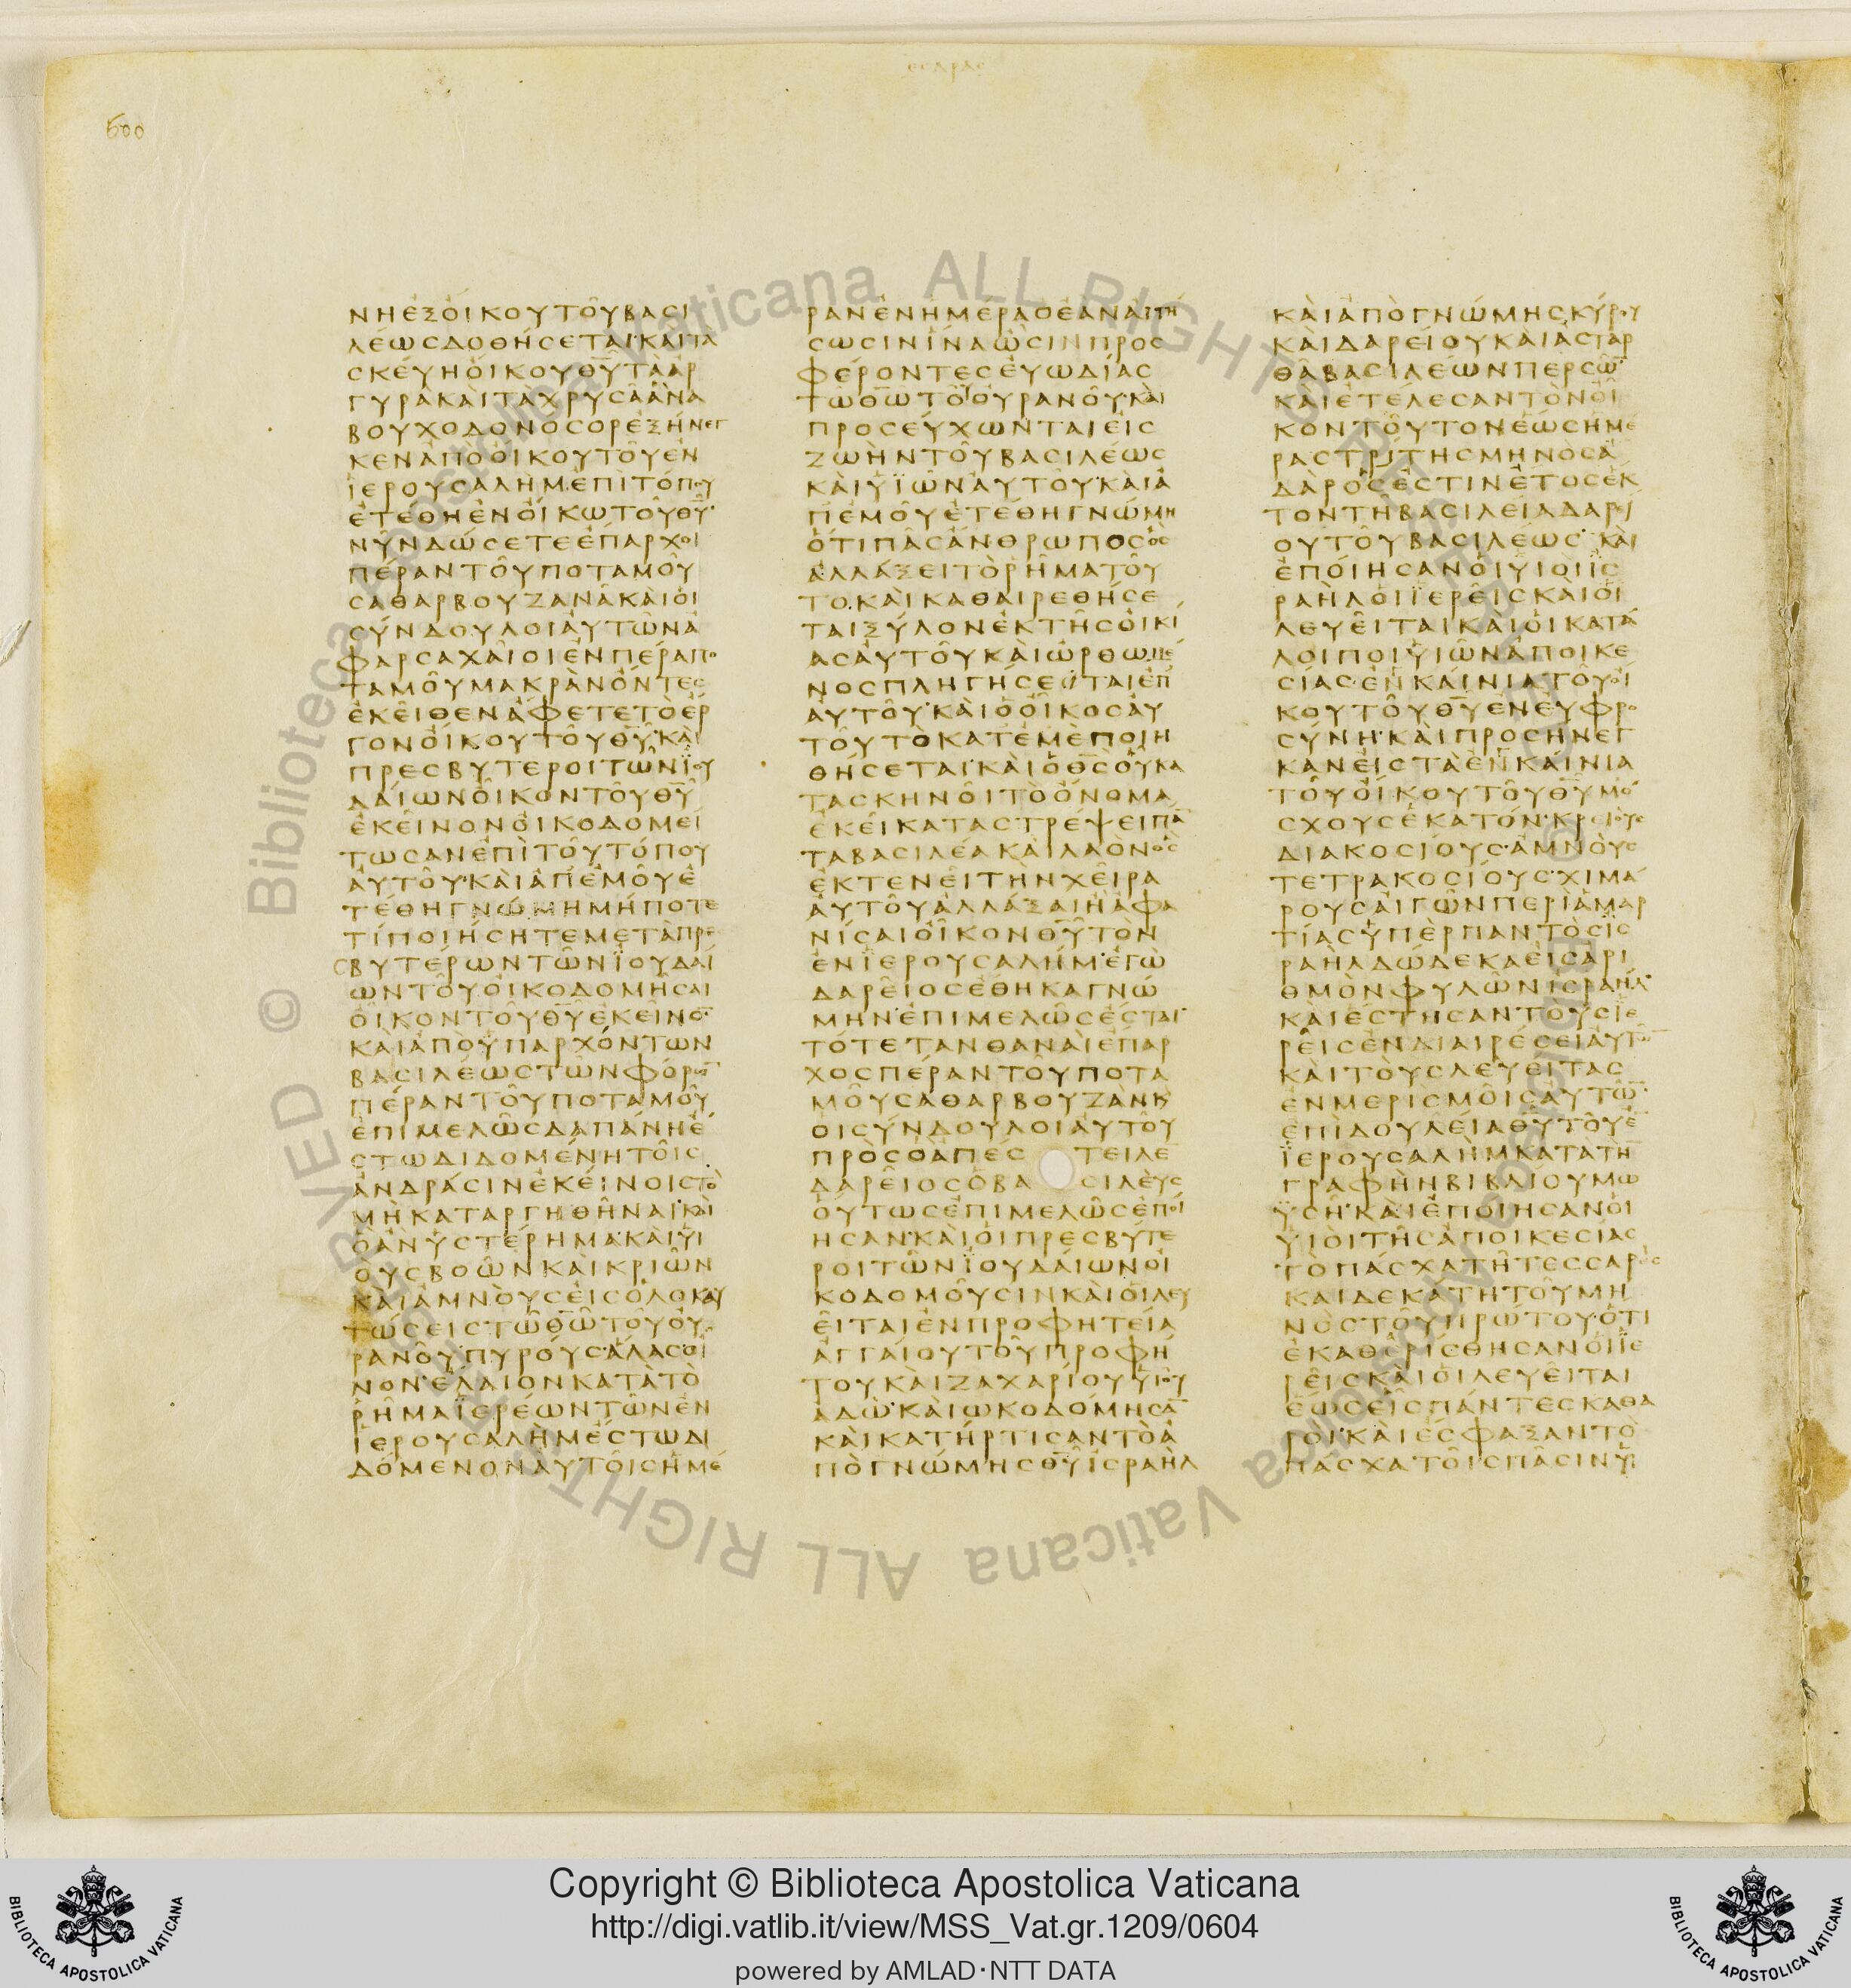 εσδρας
600
ΝΗΕΞΟΙΚΟΥΤΟΥΒΑϹΙ
ΛΕΩϹΔΟΘΗϹΕΤΑΙ·ΚΑΙΤΑ
ϹΚΕΥΗΟΙΚΟΥΘΥΤΑΑΡ
ΓΥΡΑΚΑΙΤΑΧΡΥϹΑΑΝΑ
ΒΟΥΧΟΔΟΝΟϹΟΡΕΞΗΝΕΓ
ΚΕΝΑΠΟΟΙΚΟΥΤΟΥΕΝ
ΙΕΡΟΥϹΑΛΗΜ·ΕΠΙΤΟΠΟΥ
ΕΤΕΘΗΕΝΟΙΚΩΤΟΥΘΥ·
ΝΥΝΔΩϹΕΤΕΕΠΑΡΧΟΙ
ΠΕΡΑΝΤΟΥΠΟΤΑΜΟΥ
ϹΑΘΑΡΒΟΥΖΑΝΑΚΑΙΟΙ
ϹΥΝΔΟΥΛΟΙΑΥΤΩΝΑ
ΦΑΡϹΑΧΑΙΟΙΕΝΠΕΡΑΠΟ
ΤΑΜΟΥΜΑΚΡΑΝΟΝΤΕϹ
ΕΚΕΙΘΕΝΑΦΕΤΕΤΟΕΡ
ΓΟΝΟΙΚΟΥΤΟΥΘΥ·ΚΑΙ
ΠΡΕϹΒΥΤΕΡΟΙΤΩΝΪΟΥ
ΔΑΙΩΝΟΙΚΟΝΤΟΥΘΥ
ΕΚΕΙΝΟΝΟΙΚΟΔΟΜΕΙ
ΤΩϹΑΝΕΠΙΤΟΥΤΟΠΟΥ
ΑΥΤΟΥ·ΚΑΙΑΠΕΜΟΥΕ
ΤΕΘΗΓΝΩΜΗΜΗΠΟΤΕ
ΤΙΠΟΙΗϹΗΤΕΜΕΤΑΠΡΕ
ϹΒΥΤΕΡΩΝΤΩΝΪΟΥΔΑΙ
ΩΝΤΟΥΟΙΚΟΔΟΜΗϹΑΙ
ΟΙΚΟΝΤΟΥΘΥΕΚΕΙΝΟ·
ΚΑΙΑΠΟΫΠΑΡΧΟΝΤΩΝ
ΒΑϹΙΛΕΩϹΤΩΝΦΟΡΩ
ΠΕΡΑΝΤΟΥΠΟΤΑΜΟΥ
ΕΠΙΜΕΛΩϹΔΑΠΑΝΗΕ
ϹΤΩΔΙΔΟΜΕΝΗΤΟΙϹ
ΑΝΔΡΑϹΙΝΕΚΕΙΝΟΙϹΤΟ
ΜΗΚΑΤΑΡΓΗΘΗΝΑΙ·ΚΑΙ
ΟΑΝΥϹΤΕΡΗΜΑ·ΚΑΙΥΙ
ΟΥϹΒΟΩΝΚΑΙΚΡΙΩΝ
ΚΑΙΑΜΝΟΥϹΕΙϹΟΛΟΚΑΥ
ΤΩϹΕΙϹΤΩΘΩΤΟΥΟΥ
ΡΑΝΟΥ·ΠΥΡΟΥϹ·ΑΛΑϹ·ΟΙ
ΝΟΝ·ΕΛΑΙΟΝΚΑΤΑΤΟ
ΡΗΜΑΪΕΡΕΩΝΤΩΝΕΝ
ΙΕΡΟΥϹΑΛΗΜΕϹΤΩΔΙ
ΔΟΜΕΝΟΝΑΥΤΟΙϹΗΜΕ
ΡΑΝΕΝΗΜΕΡΑΟΕΑΝΑΙΤΗ
ϹΩϹΙΝΙΝΑΩϹΙΝΠΡΟϹ
ΦΕΡΟΝΤΕϹΕΥΩΔΙΑϹ
ΤΩΘΩΤΟΥΟΥΡΑΝΟΥ·ΚΑΙ
ΠΡΟϹΕΥΧΩΝΤΑΙΕΙϹ
ΖΩΗΝΤΟΥΒΑϹΙΛΕΩϹ
ΚΑΙΥΪΩΝΑΥΤΟΥ·ΚΑΙΑ
ΠΕΜΟΥΕΤΕΘΗΓΝΩΜΗ
ΟΤΙΠΑϹΑΝΘΡΩΠΟϹΟϹ
ΑΛΛΑΞΕΙΤΟΡΗΜΑΤΟΥ
ΤΟ·ΚΑΙΚΑΘΑΙΡΕΘΗϹΕ
ΤΑΙΞΥΛΟΝΕΚΤΗϹΟΙΚΙ
ΑϹΑΥΤΟΥΚΑΙΩΡΘΩΜΕ
ΝΟϹΠΛΗΓΗϹΕΤΑΙΕΠ
ΑΥΤΟΥ·ΚΑΙΟΟΙΚΟϹΑΥ
ΤΟΥΤΟΚΑΤΕΜΕΠΟΙΗ
ΘΗϹΕΤΑΙ·ΚΑΙΟΘϹΟΥΚΑ
ΤΑϹΚΗΝΟΙΤΟΟΝΟΜΑ
ΕΚΕΙΚΑΤΑϹΤΡΕΨΕΙΠΑ
ΤΑΒΑϹΙΛΕΑΚΑΙΛΑΟΝΟϹ
ΕΚΤΕΝΕΙΤΗΝΧΕΙΡΑ
ΑΥΤΟΥΑΛΛΑΞΑΙΗΑΦΑ
ΝΙϹΑΙΟΙΚΟΝΘΥΤΟΝ
ΕΝΪΕΡΟΥϹΑΛΗΜ·ΕΓΩ
ΔΑΡΕΙΟϹΕΘΗΚΑΓΝΩ
ΜΗΝ·ΕΠΙΜΕΛΩϹΕϹΤΑΙ·
ΤΟΤΕΤΑΝΘΑΝΑΙΕΠΑΡ
ΧΟϹΠΕΡΑΝΤΟΥΠΟΤΑ
ΜΟΥϹΑΘΑΡΒΟΥΖΑΝΚ
ΟΙϹΥΝΔΟΥΛΟΙΑΥΤΟΥ
ΠΡΟϹΟΑΠΕϹΤΕΙΛΕ
ΔΑΡΕΙΟϹΟΒΑϹΙΛΕΥϹ
ΟΥΤΩϹΕΠΙΜΕΛΩϹΕΠΟΙ
ΗϹΑΝ·ΚΑΙΟΙΠΡΕϹΒΥΤΕ
ΡΟΙΤΩΝΪΟΥΔΑΙΩΝΟΙ
ΚΟΔΟΜΟΥϹΙΝΚΑΙΟΙΛΕΥ
ΕΙΤΑΙΕΝΠΡΟΦΗΤΕΙΑ
ΑΓΓΑΙΟΥΤΟΥΠΡΟΦΗ
ΤΟΥΚΑΙΖΑΧΑΡΙΟΥΥΙΟΥ
ΑΔΩ·ΚΑΙΩΚΟΔΟΜΗϹΑ
ΚΑΙΚΑΤΗΡΤΙϹΑΝΤΟΑ
ΠΟΓΝΩΜΗϹΘΥΙϹΡΑΗΛ
ΚΑΙΑΠΟΓΝΩΜΗϹΚΥΡΟΥ
ΚΑΙΔΑΡΕΙΟΥΚΑΙΑϹΤΑΡ
ΘΑΒΑϹΙΛΕΩΝΠΕΡϹΩ·
ΚΑΙΕΤΕΛΕϹΑΝΤΟΝΟΙ
ΚΟΝΤΟΥΤΟΝΕΩϹΗΜΕ
ΡΑϹΤΡΙΤΗϹΜΗΝΟϹΑ
ΔΑΡΟϹΕϹΤΙΝΕΤΟϹΕΚ
ΤΟΝΤΗΒΑϹΙΛΕΙΑΔΑΡΙ
ΟΥΤΟΥΒΑϹΙΛΕΩϹ·ΚΑΙ
ΕΠΟΙΗϹΑΝΟΙΥΙΟΙΙϹ
ΡΑΗΛΟΙΪΕΡΕΙϹΚΑΙΟΙ
ΛΕΥΕΙΤΑΙΚΑΙΟΙΚΑΤΑ
ΛΟΙΠΟΙΥΙΩΝΑΠΟΙΚΕ
ϹΙΑϹ·ΕΝΚΑΙΝΙΑΤΟΥΟΙ
ΚΟΥΤΟΥΘΥΕΝΕΥΦΡΟ
ϹΥΝΗ·ΚΑΙΠΡΟϹΗΝΕΓ
ΚΑΝΕΙϹΤΑΕΝΚΑΙΝΙΑ
ΤΟΥΟΙΚΟΥΤΟΥΘΥΜΟ
ϹΧΟΥϹΕΚΑΤΟΝ·ΚΡΙΟΥϹ
ΔΙΑΚΟϹΙΟΥϹ·ΑΜΝΟΥϹ
ΤΕΤΡΑΚΟϹΙΟΥϹ·ΧΙΜΑ
ΡΟΥϹΑΙΓΩΝΠΕΡΙΑΜΑΡ
ΤΙΑϹΥΠΕΡΠΑΝΤΟϹΙϹ
ΡΑΗΛΔΩΔΕΚΑΕΙϹΑΡΙ
ΘΜΟΝΦΥΛΩΝΙϹΡΑΗΛ·
ΚΑΙΕϹΤΗϹΑΝΤΟΥϹΙΕ
ΡΕΙϹΕΝΔΙΑΙΡΕϹΕΙΑΥΤΩ
ΚΑΙΤΟΥϹΛΕΥΕΙΤΑϹ
ΕΝΜΕΡΙϹΜΟΙϹΑΥΤΩ·
ΕΠΙΔΟΥΛΕΙΑΘΥΤΟΥΕ
ΪΕΡΟΥϹΑΛΗΜΚΑΤΑΤΗ
ΓΡΑΦΗΝΒΙΒΛΙΟΥΜΩ
ΥϹΗ·ΚΑΙΕΠΟΙΗϹΑΝΟΙ
ΥΙΟΙΤΗϹΑΠΟΙΚΕϹΙΑϹ
ΤΟΠΑϹΧΑΤΗΤΕϹϹΑΡΕϹ
ΚΑΙΔΕΚΑΤΗΤΟΥΜΗ
ΝΟϹΤΟΥΠΡΩΤΟΥ·ΟΤΙ
ΕΚΑΘΕΡΙϹΘΗϹΑΝΟΙΪΕ
ΡΕΙϹΚΑΙΟΙΛΕΥΕΙΤΑΙ
ΕΩϹΕΙϹΠΑΝΤΕϹΚΑΘΑ
ΡΟΙ·ΚΑΙΕϹΦΑΞΑΝΤΟ
ΠΑϹΧΑΤΟΙϹΠΑϹΙΝΥΙ
© Biblioteca Apostolica Vaticana ALL RIGHTS RESERVED © Biblioteca Apostolica Vaticana ALL RIGHTS RESERVED
Copyright © Biblioteca Apostolica Vaticana
http://digi.vatlib.it/view/MSS_Vat.gr.1209/0604
powered by AMLAD·NTT DATA
BIBLIOTECA APOSTOLICA VATICANA
BIBLIOTECA APOSTOLICA VATICANA